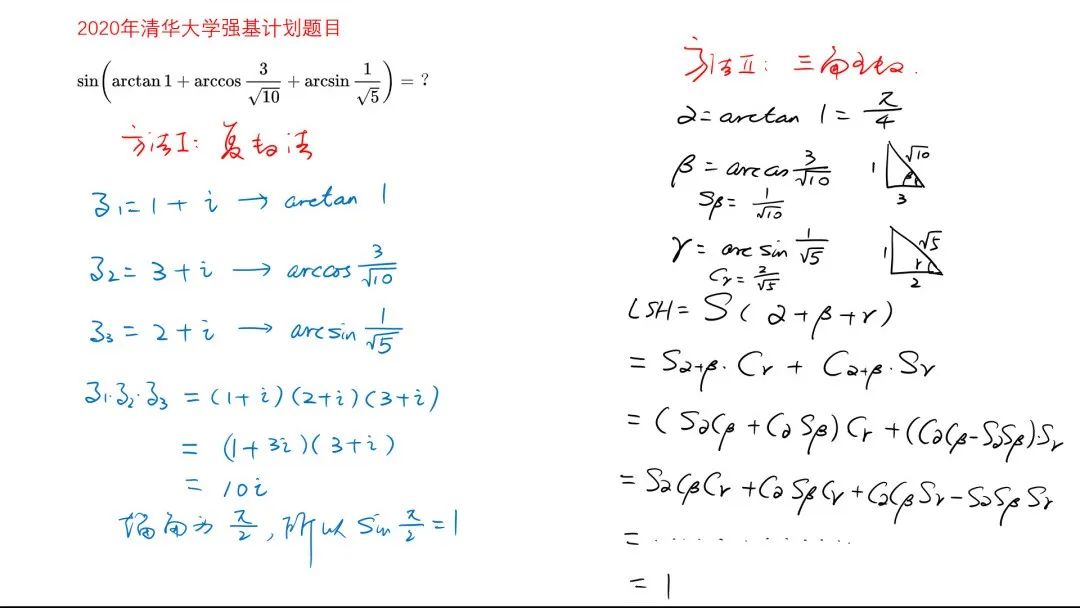 2020年清华大学强基计划题目
sin(arctan 1 + arccos 3/√10 + arcsin 1/√5) = ?
方法I: 复数法
z₁ = 1 + i → arctan 1
z₂ = 3 + i → arccos 3/√10
z₃ = 2 + i → arcsin 1/√5
z₁·z₂·z₃ = (1+i)(2+i)(3+i)
= (1+3i)(3+i)
= 10i
辐角为 π/2, 所以 sin π/2 = 1
方法II: 三角函数.
α = arctan 1 = π/4
β = arccos 3/√10
Sβ = 1/√10
1 √10 β 3
γ = arcsin 1/√5
Cγ = 2/√5
1 √5 γ 2
LSH = S(α+β+γ)
= Sα+β·Cγ + Cα+β·Sγ
= (SαCβ + CαSβ)Cγ + (CαCβ - SαSβ)·Sγ
= SαCβCγ + CαSβCγ + CαCβSγ - SαSβSγ
= ............
= 1